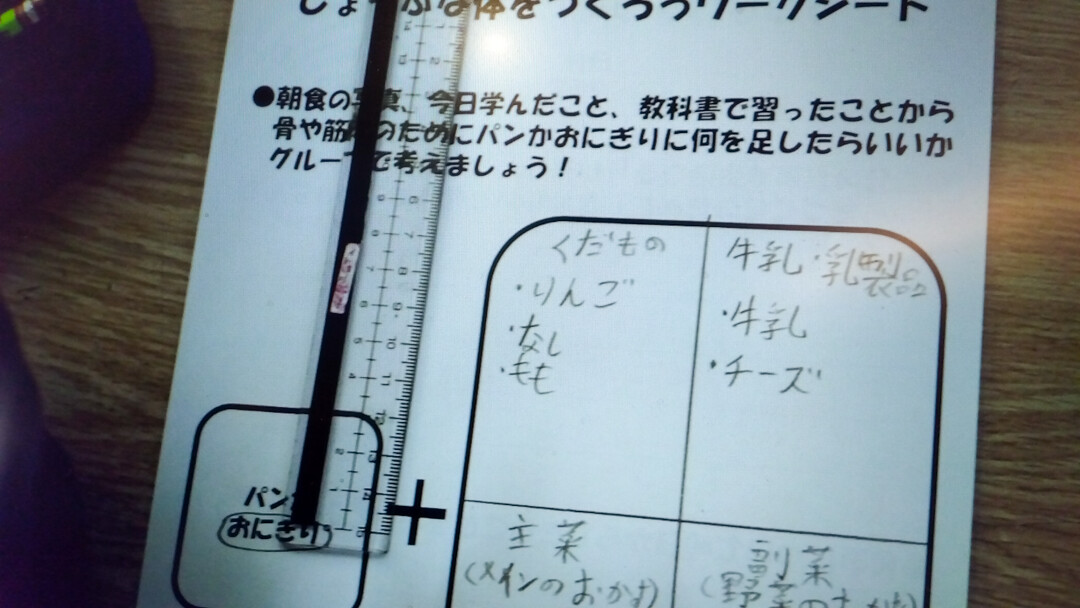 じょうぶな体をつくろうワークシート
●朝食の写真、今日学んだこと、教科書で習ったことから
骨や筋肉のためにパンかおにぎりに何を足したらいいか
グループで考えましょう！
くだもの
・りんご
・なし
・もも
牛乳・乳製品
・牛乳
・チーズ
パンか
おにぎり
+
主菜
(メインのおかず)
副菜
(野菜のおかず)